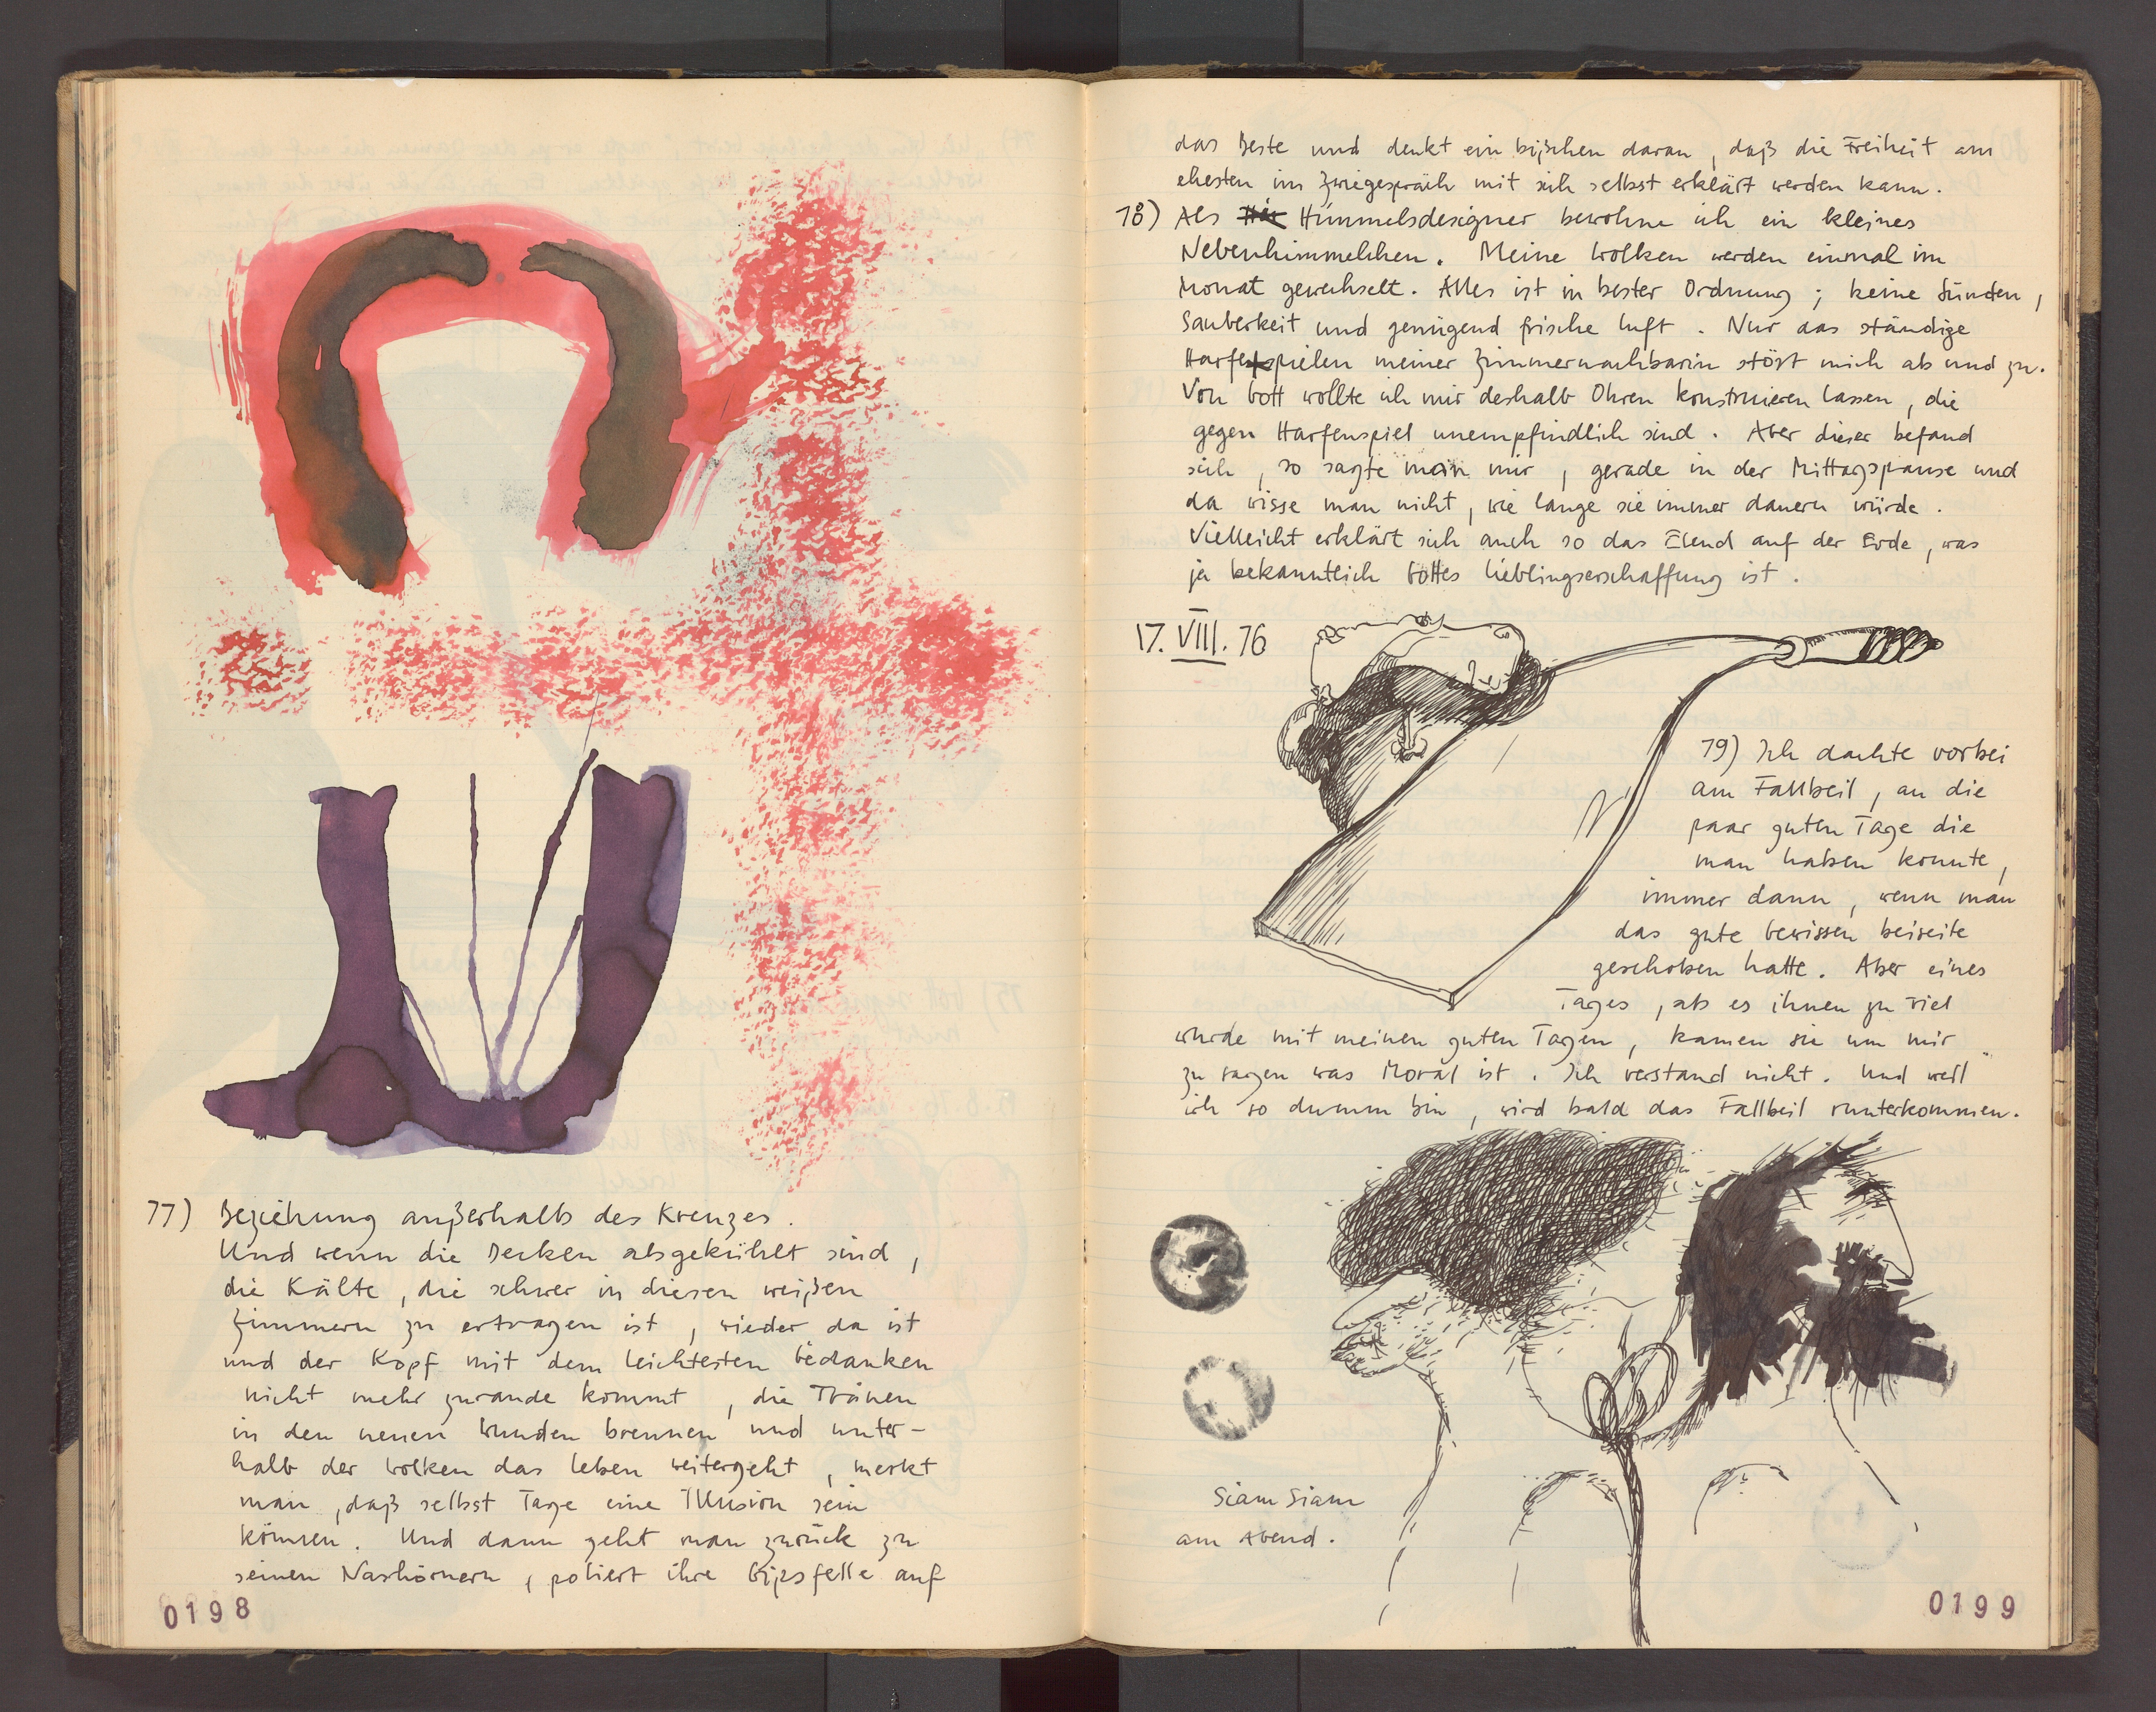 77) Beziehung außerhalb des Kreuzes.
Und wenn die Decken abgekühlt sind,
die Kälte, die schwer in diesen weißen
Zimmern zu ertragen ist, wieder da ist
und der Kopf mit dem leichtesten Gedanken
nicht mehr zurande kommt, die Tränen
in den neuen Wunden brennen und unter-
halb der Wolken das Leben weitergeht, merkt
man, daß selbst Tage eine Illusion sein
können. Und dann geht man zurück zu
seinen Nashörnern, poliert ihre Gipsfelle auf
0198
das Beste und denkt ein bißchen daran, daß die Freiheit am
ehesten im Zwiegespräch mit sich selbst erklärt werden kann.
78) Als Himmelsdesigner bewohne ich ein kleines
Nebenhimmelchen. Meine Wolken werden einmal im
Monat gewechselt. Alles ist in bester Ordnung; keine Sünden,
Sauberkeit und genügend frische Luft. Nur das ständige
Harfespielen meiner Zimmernachbarin stört mich ab und zu.
Von Gott wollte ich mir deshalb Ohren konstruieren lassen, die
gegen Harfenspiel unempfindlich sind. Aber dieser befand
sich, so sagte man mir, gerade in der Mittagspause und
da wisse man nicht, wie lange sie immer dauern würde.
Vielleicht erklärt sich auch so das Elend auf der Erde, was
ja bekanntlich Gottes Lieblingserschaffung ist.
17. VIII. 76
79) Ich dachte vorbei
am Fallbeil, an die
paar guten Tage die
man haben konnte,
immer dann, wenn man
das gute Gewissen beiseite
geschoben hatte. Aber eines
Tages, als es ihnen zu viel
wurde mit meinen guten Tagen, kamen sie um mir
zu sagen was Moral ist. Ich verstand nicht. Und weil
ich so dumm bin, wird bald das Fallbeil runterkommen.
Siam Siam
am Abend.
0199